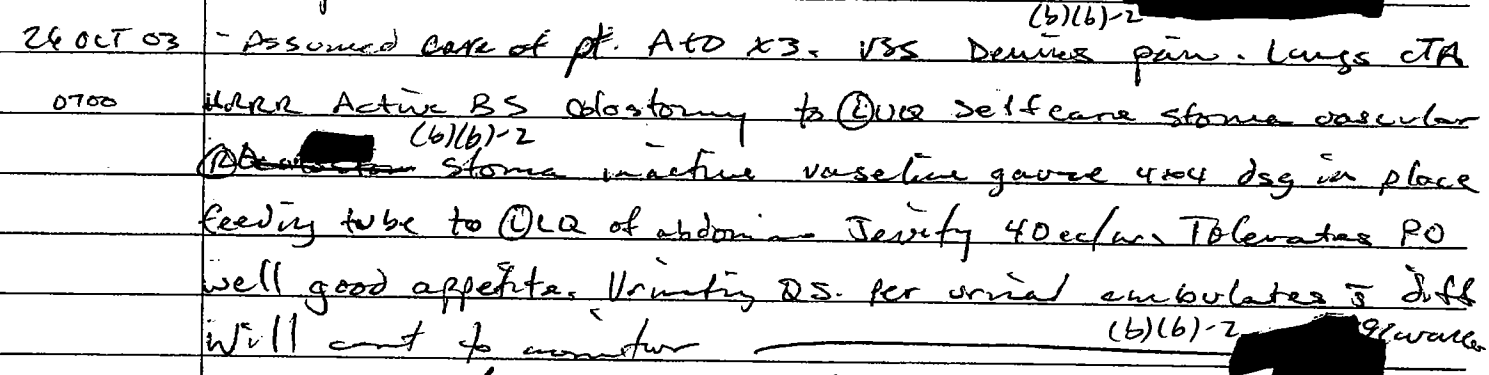 (b)(6)-2
26 OCT 03 - Assumed care of pt. A+O x3. VSS Denies pain. Lungs CTA
0700 HRRR Active BS colostomy to Ⓛ UQ self care stoma vascular
(b)(6)-2
Ⓡ stoma inactive vaseline gauze 4x4 dsg in place
feeding tube to Ⓛ LQ of abdomen Jevity 40cc/hr. Tolerates PO
well good appetite. Urinating QS. per urinal ambulates s̄ diff
Will cont to monitor
(b)(6)-2